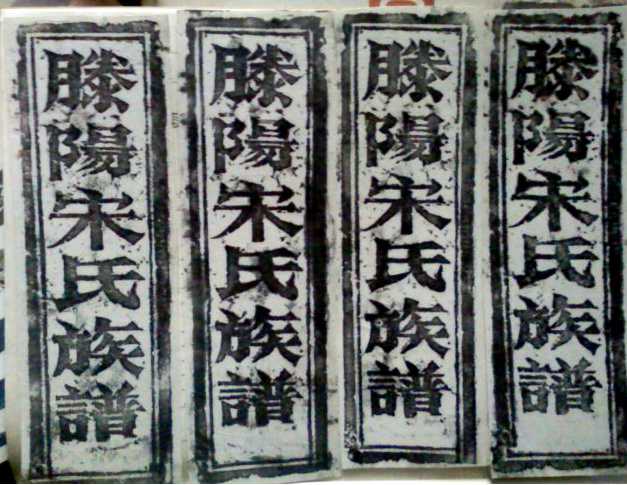 滕陽宋氏族譜
滕陽宋氏族譜
滕陽宋氏族譜
滕陽宋氏族譜